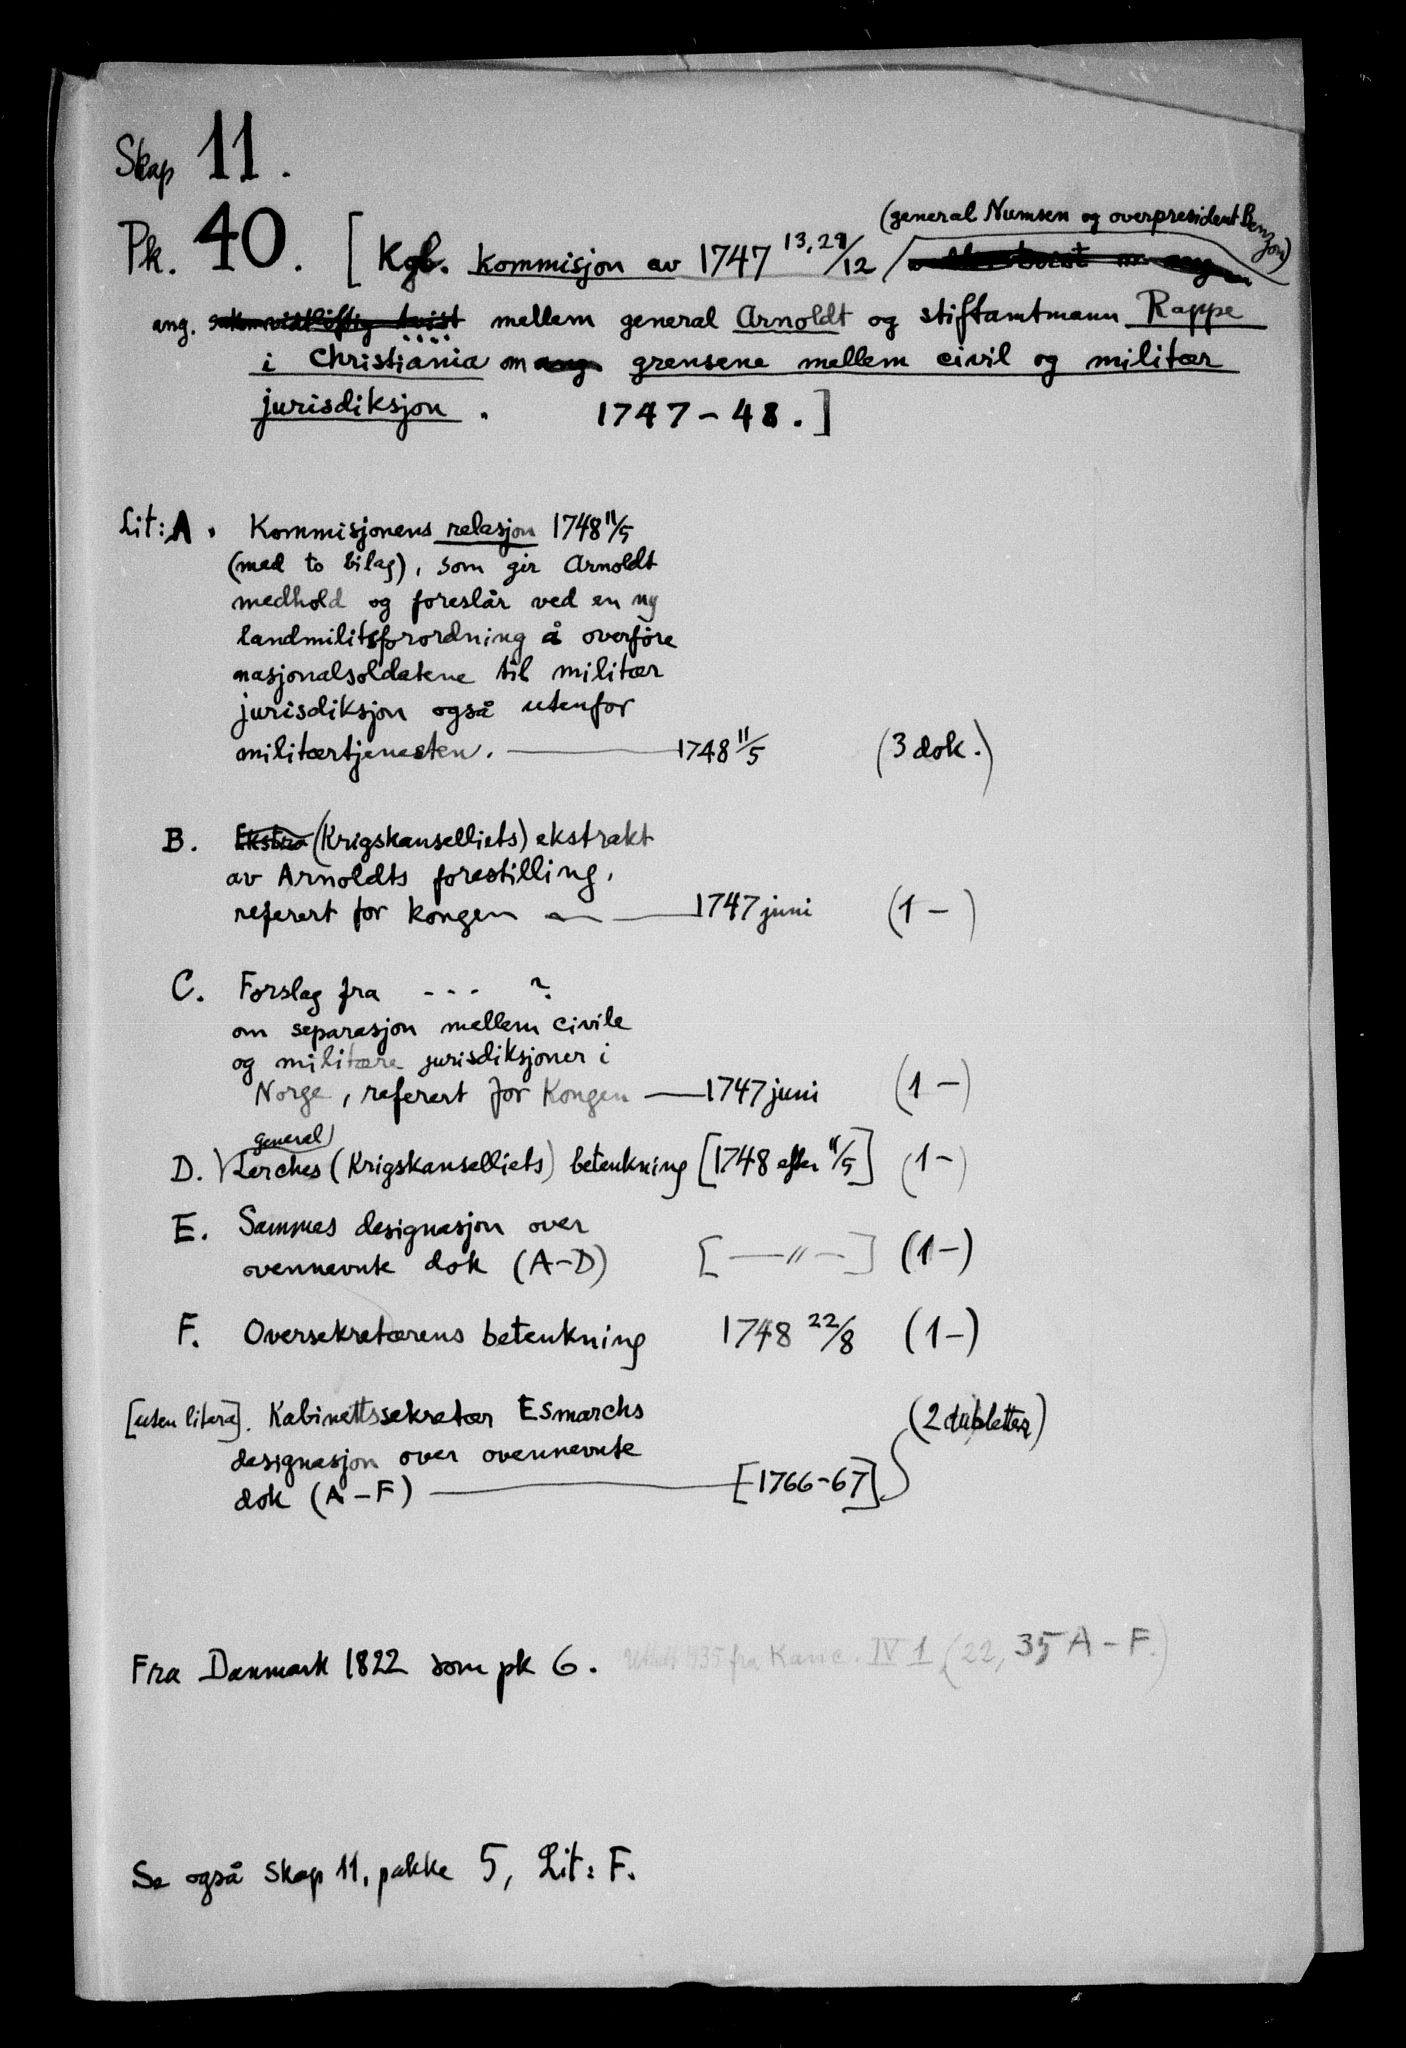 Skap 11.
(general Numsen og overpresident Benzon)
Pk. 40. [Kgl. kommisjon av 1747 13,29/12
ang. saken vidtløftig tvist mellem general Arnoldt og stiftamtmann Rappe
i Christiania om ang grensene mellem civil og militær
jurisdiksjon. 1747-48.]
Lit: A. Kommisjonens relasjon 1748 11/5
(med to bilag), som gir Arnoldt
medhold og foreslår ved en ny
landmilitsforordning å overføre
nasjonalsoldatene til militær
jurisdiksjon også utenfor
militærtjenesten. — 1748 11/5 (3 dok.)
B. Ekstra (Krigskanselliets) ekstrakt
av Arnoldts forestilling,
referert for kongen — 1747 juni (1 -)
C. Forslag fra --- ?
om separasjon mellem civile
og militære jurisdiksjoner i
Norge, referert for Kongen — 1747 juni (1 -)
general
D. Lerches (Krigskanselliets) betenkning [1748 efter 11/5] (1 -)
E. Sammes designasjon over
ovennevnte dok (A-D) [— " —] (1 -)
F. Oversekretærens betenkning 1748 22/8 (1 -)
[uten litera]. Kabinettssekretær Esmarchs (2 dubletter)
designasjon over ovennevnte
dok (A-F) — [1766-67]
Fra Danmark 1822 som pk 6. 1935 fra Kanc. IV 1 (22, 35 A-F.)
Se også Skap 11, pakke 5, Lit: F.